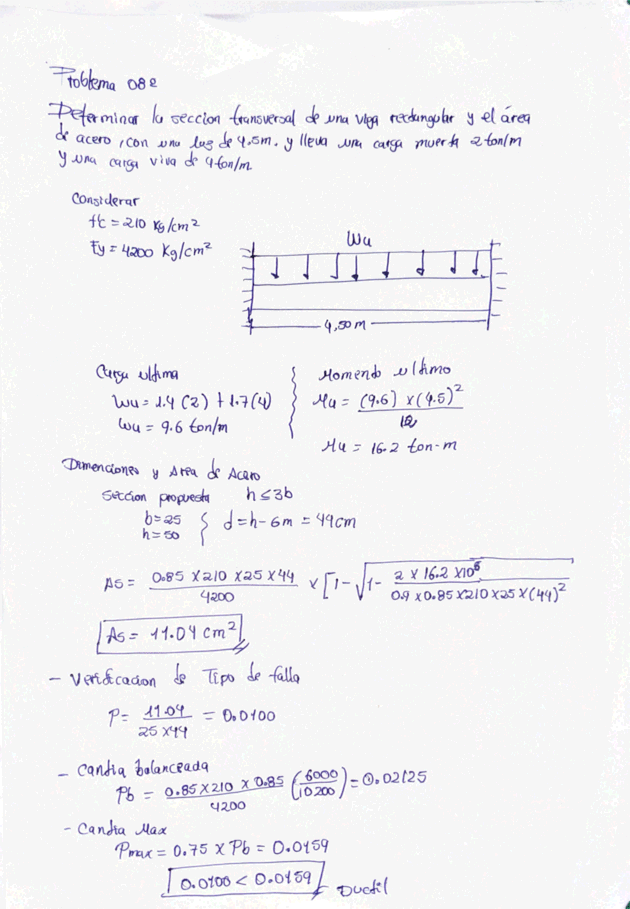 Problema 082
Determinar la seccion transversal de una viga rectangular y el área
de acero, con una luz de 4.5m. y lleva una carga muerta 2 ton/m
y una carga viva de 4 ton/m
Considerar
f'c = 210 kg/cm²
Fy = 4200 Kg/cm²
Wu
4,50 m
Carga ultima
Wu = 1.4 (2) + 1.7 (4)
Wu = 9.6 ton/m
Momento ultimo
Mu = (9.6) x (4.5)² / 12
Mu = 16.2 ton-m
Dimenciones y Area de Acero
Seccion propuesta h ≤ 3b
b = 25
h = 50
d = h - 6m = 44cm
As = 0.85 x 210 x 25 x 44 / 4200 x [1 - √1 - 2 x 16.2 x 10⁵ / 0.9 x 0.85 x 210 x 25 x (44)²
As = 11.04 cm²
- Verificacion de Tipo de falla
P = 11.04 / 25 x 44 = 0.0100
- Cantia balanceada
Pb = 0.85 x 210 x 0.85 / 4200 (6000 / 10200) = 0.02125
- Cantia Max
Pmax = 0.75 x Pb = 0.0159
0.0100 < 0.0159 Ductil